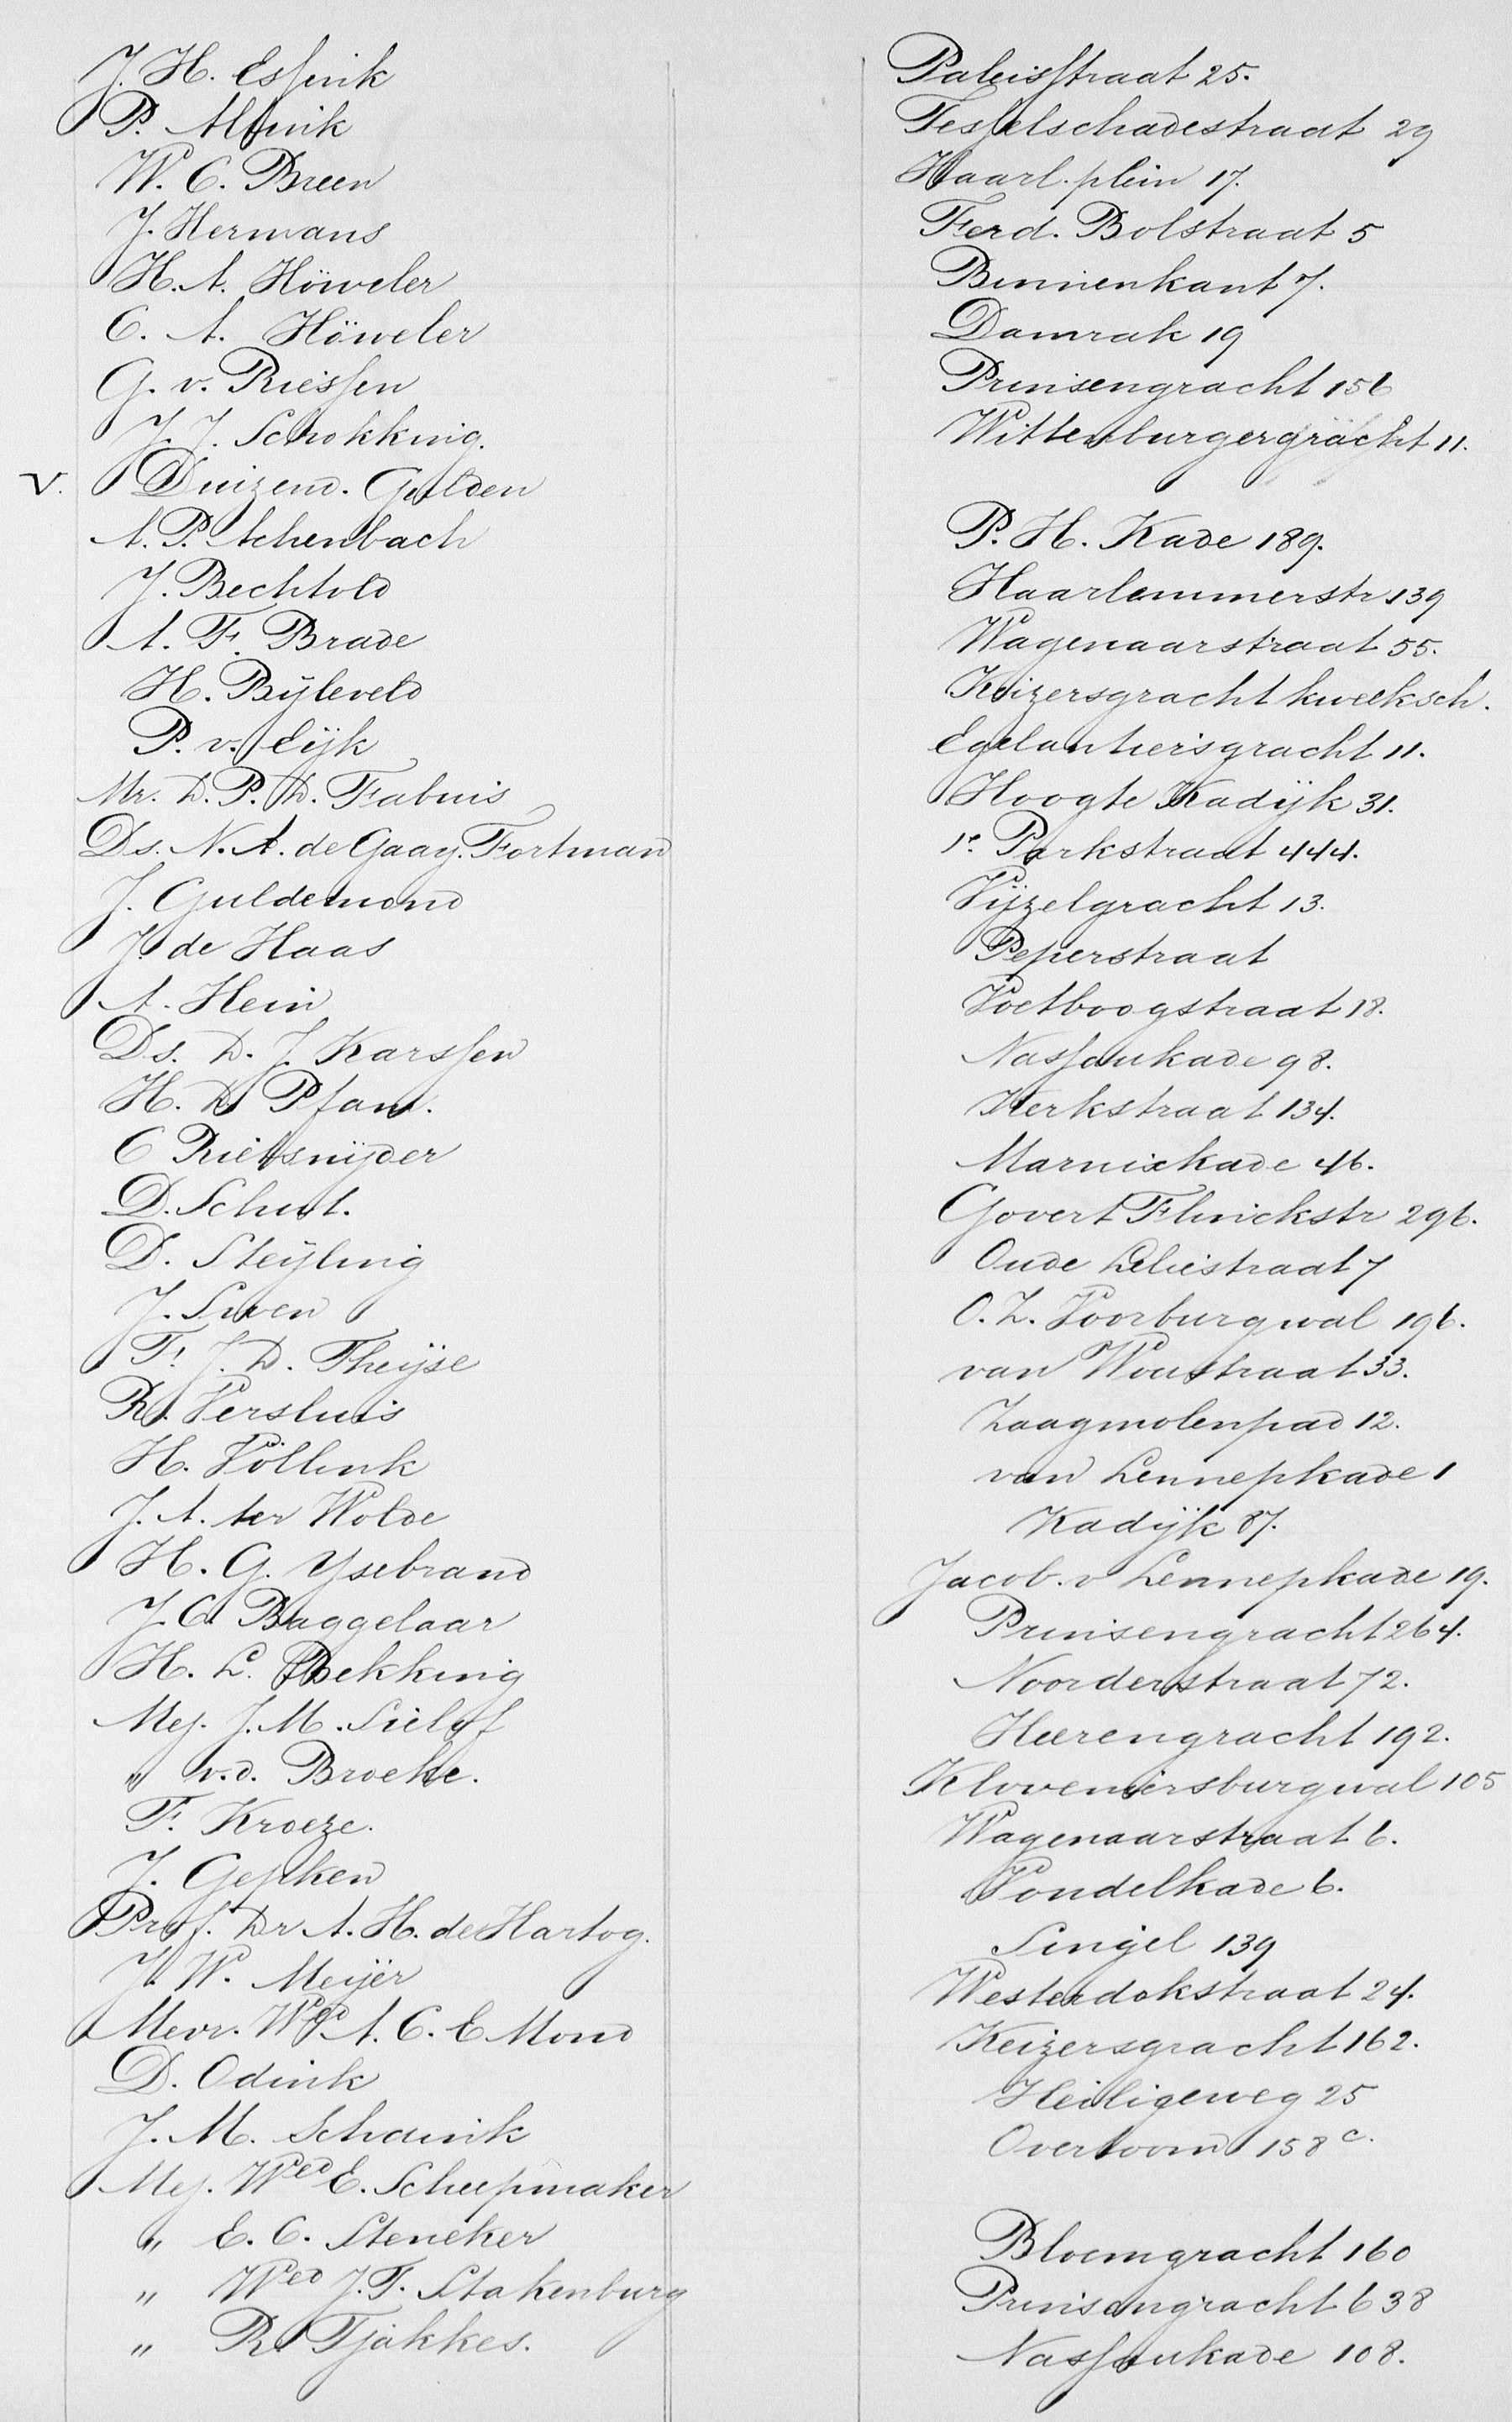 J. H. Essink Paleisstraat 25.
P. Alfrink Tesselschadestraat 29
W. C. Breen Haarl. plein 17.
J. Hermans Ferd. Bolstraat 5
H. A. Höweler Binnenkant 7.
C. A. Höweler Damrak 19
G. v. Riessen Prinsengracht 156
J. J. Schokking. Wittenburgergracht 11.
V. Duizend. Gulden
A. P. Achenbach P. H. Kade 189.
J. Bechtold Haarlemmerstr 139
A. F. Brade Wagenaarstraat 55.
H. Bijleveld Keizersgracht kweeksch.
P. v. Eijk Egelantiersgracht 11.
Mr. D. P. D. Fabius Hoogte Kadijk 31.
Ds. N. A. de Gaay. Fortman 1e Parkstraat 444.
J. Guldemond Vijzelgracht 13.
J. de Haas Peperstraat
A. Hein Voetboogstraat 18.
Ds. D. J. Karssen Nassaukade 98.
H. D. Pfann. Kerkstraat 134.
C Rietsnijder Marnixkade 46.
D. Schut. Govert Flinckstr 296.
D. Steijling Oude Leliestraat 7
J. Swen O. Z. Voorburgwal 196.
F. J. D. Theijse van Woustraat 33.
R. Versluis Zaagmolenpad 12.
H. Völlink van Lennepkade 1
J. A. ter Wolde Kadijk 87.
H. G. Ysebrand Jacob. v Lennepkade 19.
J. C. Baggelaar Prinsengracht 264.
H. L. Bekking Noorderstraat 72.
Mej. J. M. Sielof Heerengracht 192.
" v. d. Broeke. Kloveniersburgwal 105
F. Kroeze. Wagenaarstraat 6.
J. Gepken Vondelkade 6.
Prof. Dr A. H. de Hartog. Singel 139
J. W. Meijer Westerdokstraat 24.
Mevr. Wed A. C. E Mond Keizersgracht 162.
D. Odink Heiligeweg 25
J. M. Schaink Overtoom 158 c.
Mej. Wed E. Scheepmaker
" E. C. Steneker Bloemgracht 160
" Wed J. F. Stakenburg Prinsengracht 638
" R. Tjakkes. Nassaukade 108.